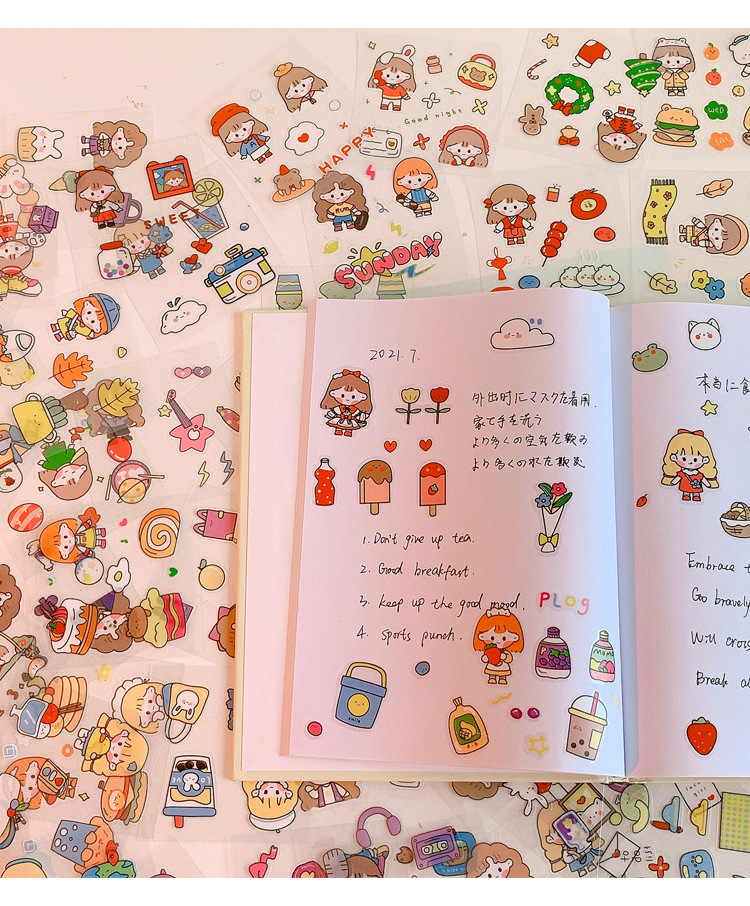 Good night
HAPPY
SWEET
SUNDAY
WED
SAT.
RUN
2021.7.
外出时にマスクを着用.
家で手を洗う
より多くの空気を
より多くの
本当に
1. Don't give up tea.
2. Good breakfast.
3. keep up the good mood.
4. sports punch.
PLOG
MOMO
smile
Embrace
Go bravely
Will cros
Break
LOVE
girl
to
do
list